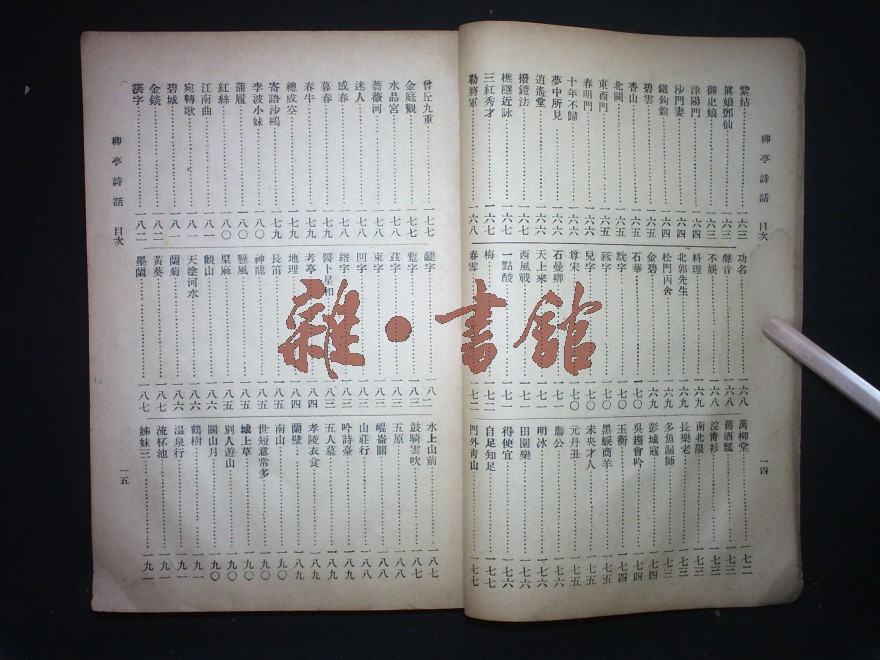 柳亭詩話 目次
紫姑……一六三
眞娘鄧仙……一六三
御史娘……一六三
津陽門……一六四
沙門妻……一六四
鐵鉤鎖……一六四
碧雲……一六五
香山……一六五
北闕……一六五
東西門……一六五
春明門……一六六
十年不歸……一六六
夢中所見……一六六
逍遙堂……一六六
撥鐙法……一六六
樵隱近詠……一六七
三紅秀才……一六七
勒將軍……一六八
功名……一六八
磬音……一六八
不娛……一六八
料理……一六九
北郭先生……一六九
松門丙舍……一六九
金碧……一六九
石華……一七〇
字……一七〇
字……一七〇
兒字……一七〇
尊宋……一七〇
石曼卿……一七一
天上來……一七一
西風戰……一七一
一點酸……一七一
梅……一七二
春雪……一七二
萬柳堂……一七二
舊酒瓢……一七三
淀青衫……一七三
南北限……一七三
長樂老……一七三
多魚漏師……一七三
彭城寇……一七四
吳趨會吟……一七四
玉衡……一七四
黑蜧商羊……一七五
未央才人……一七五
元丹丑……一七五
鵬公……一七六
明冰……一七六
田園樂……一七六
得便宜……一七六
自足知足……一七七
門外靑山……一七七
一四
柳亭詩話 目次
曾丘九重……一七七
金庭觀……一七七
水晶宮……一七八
薔薇河……一七八
迷人……一七八
感春……一七八
暮春……一七九
春牛……一七九
總成空……一七九
寄語沙鷗……一七九
李波小妹……一八〇
蒲履……一八〇
紅絲……一八〇
江南曲……一八一
宛轉歌……一八一
碧城……一八一
金錢……一八二
漢字……一八二
字……一八二
字……一八二
茲字……一八三
束字……一八三
凹字……一八三
字……一八三
醫卜星相……一八三
考亭……一八四
地理……一八四
長笛……一八五
神龍……一八五
颶風……一八五
皇麻……一八五
觀山……一八六
天塗河水……一八六
蘭菊……一八六
黃葵……一八七
墨蘭……一八七
水上山前……一八七
鼓騎雲吹……一八七
五原……一八八
崐崙關……一八八
山莊行……一八八
吟詩臺……一八九
五人墓……一八九
孝陵衣食……一八九
蘭甓……一八九
南山……一九〇
世短意常多……一九〇
城上草……一九〇
別人遊山……一九〇
關山月……一九〇
鶴樹……一九一
温泉行……一九一
流杯池……一九一
姊妹三……一九一
一五
雜·書舘